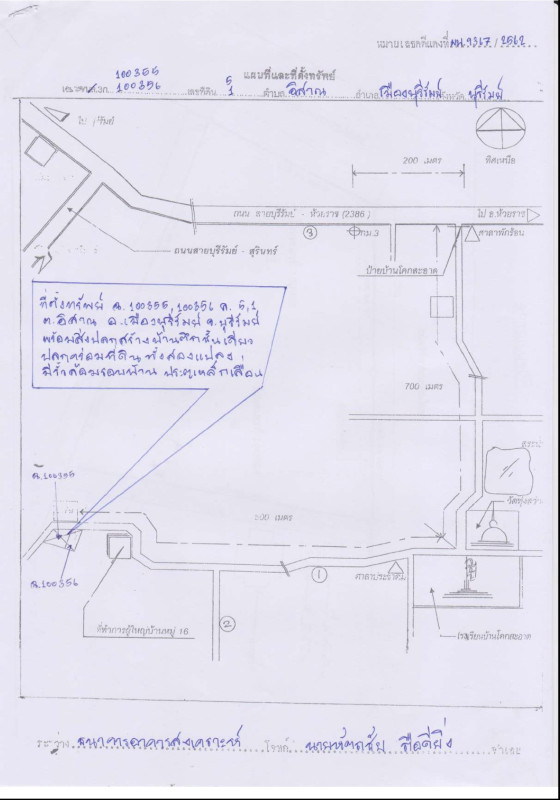 หมายเลขคดีแดงที่ ผบ.9367/2562
แผนที่และที่ตั้งทรัพย์
100355
100356 เลขที่ดิน 5 1 ตำบล อิสาณ อำเภอ เมืองบุรีรัมย์ จังหวัด บุรีรัมย์
ทิศเหนือ
200 เมตร
ถนน สายบุรีรัมย์ - ห้วยราช (2386)
ไป อ.ห้วยราช
3
กม.3
ศาลาพักร้อน
ถนนสายบุรีรัมย์ - สุรินทร์
ป้ายบ้านโคกสะอาด
ที่ตั้งทรัพย์ ฉ.100355,100356 ด. 5,1
ต.อิสาณ อ.เมืองบุรีรัมย์ จ.บุรีรัมย์
พร้อมสิ่งปลูกสร้างบ้านตึกชั้นเดียว
ปลูกคร่อมที่ดินทั้งสองแปลง
มีรั้วล้อมรอบบ้าน ประตูเหล็กเลื่อน
700 เมตร
ฉ.100355
500 เมตร
ฉ.100356
1
ศาลาประชาคม
2
ที่ทำการผู้ใหญ่บ้านหมู่ 16
โรงเรียนบ้านโคกสะอาด
ระหว่าง ธนาคารอาคารสงเคราะห์ โจทก์ จำเลย